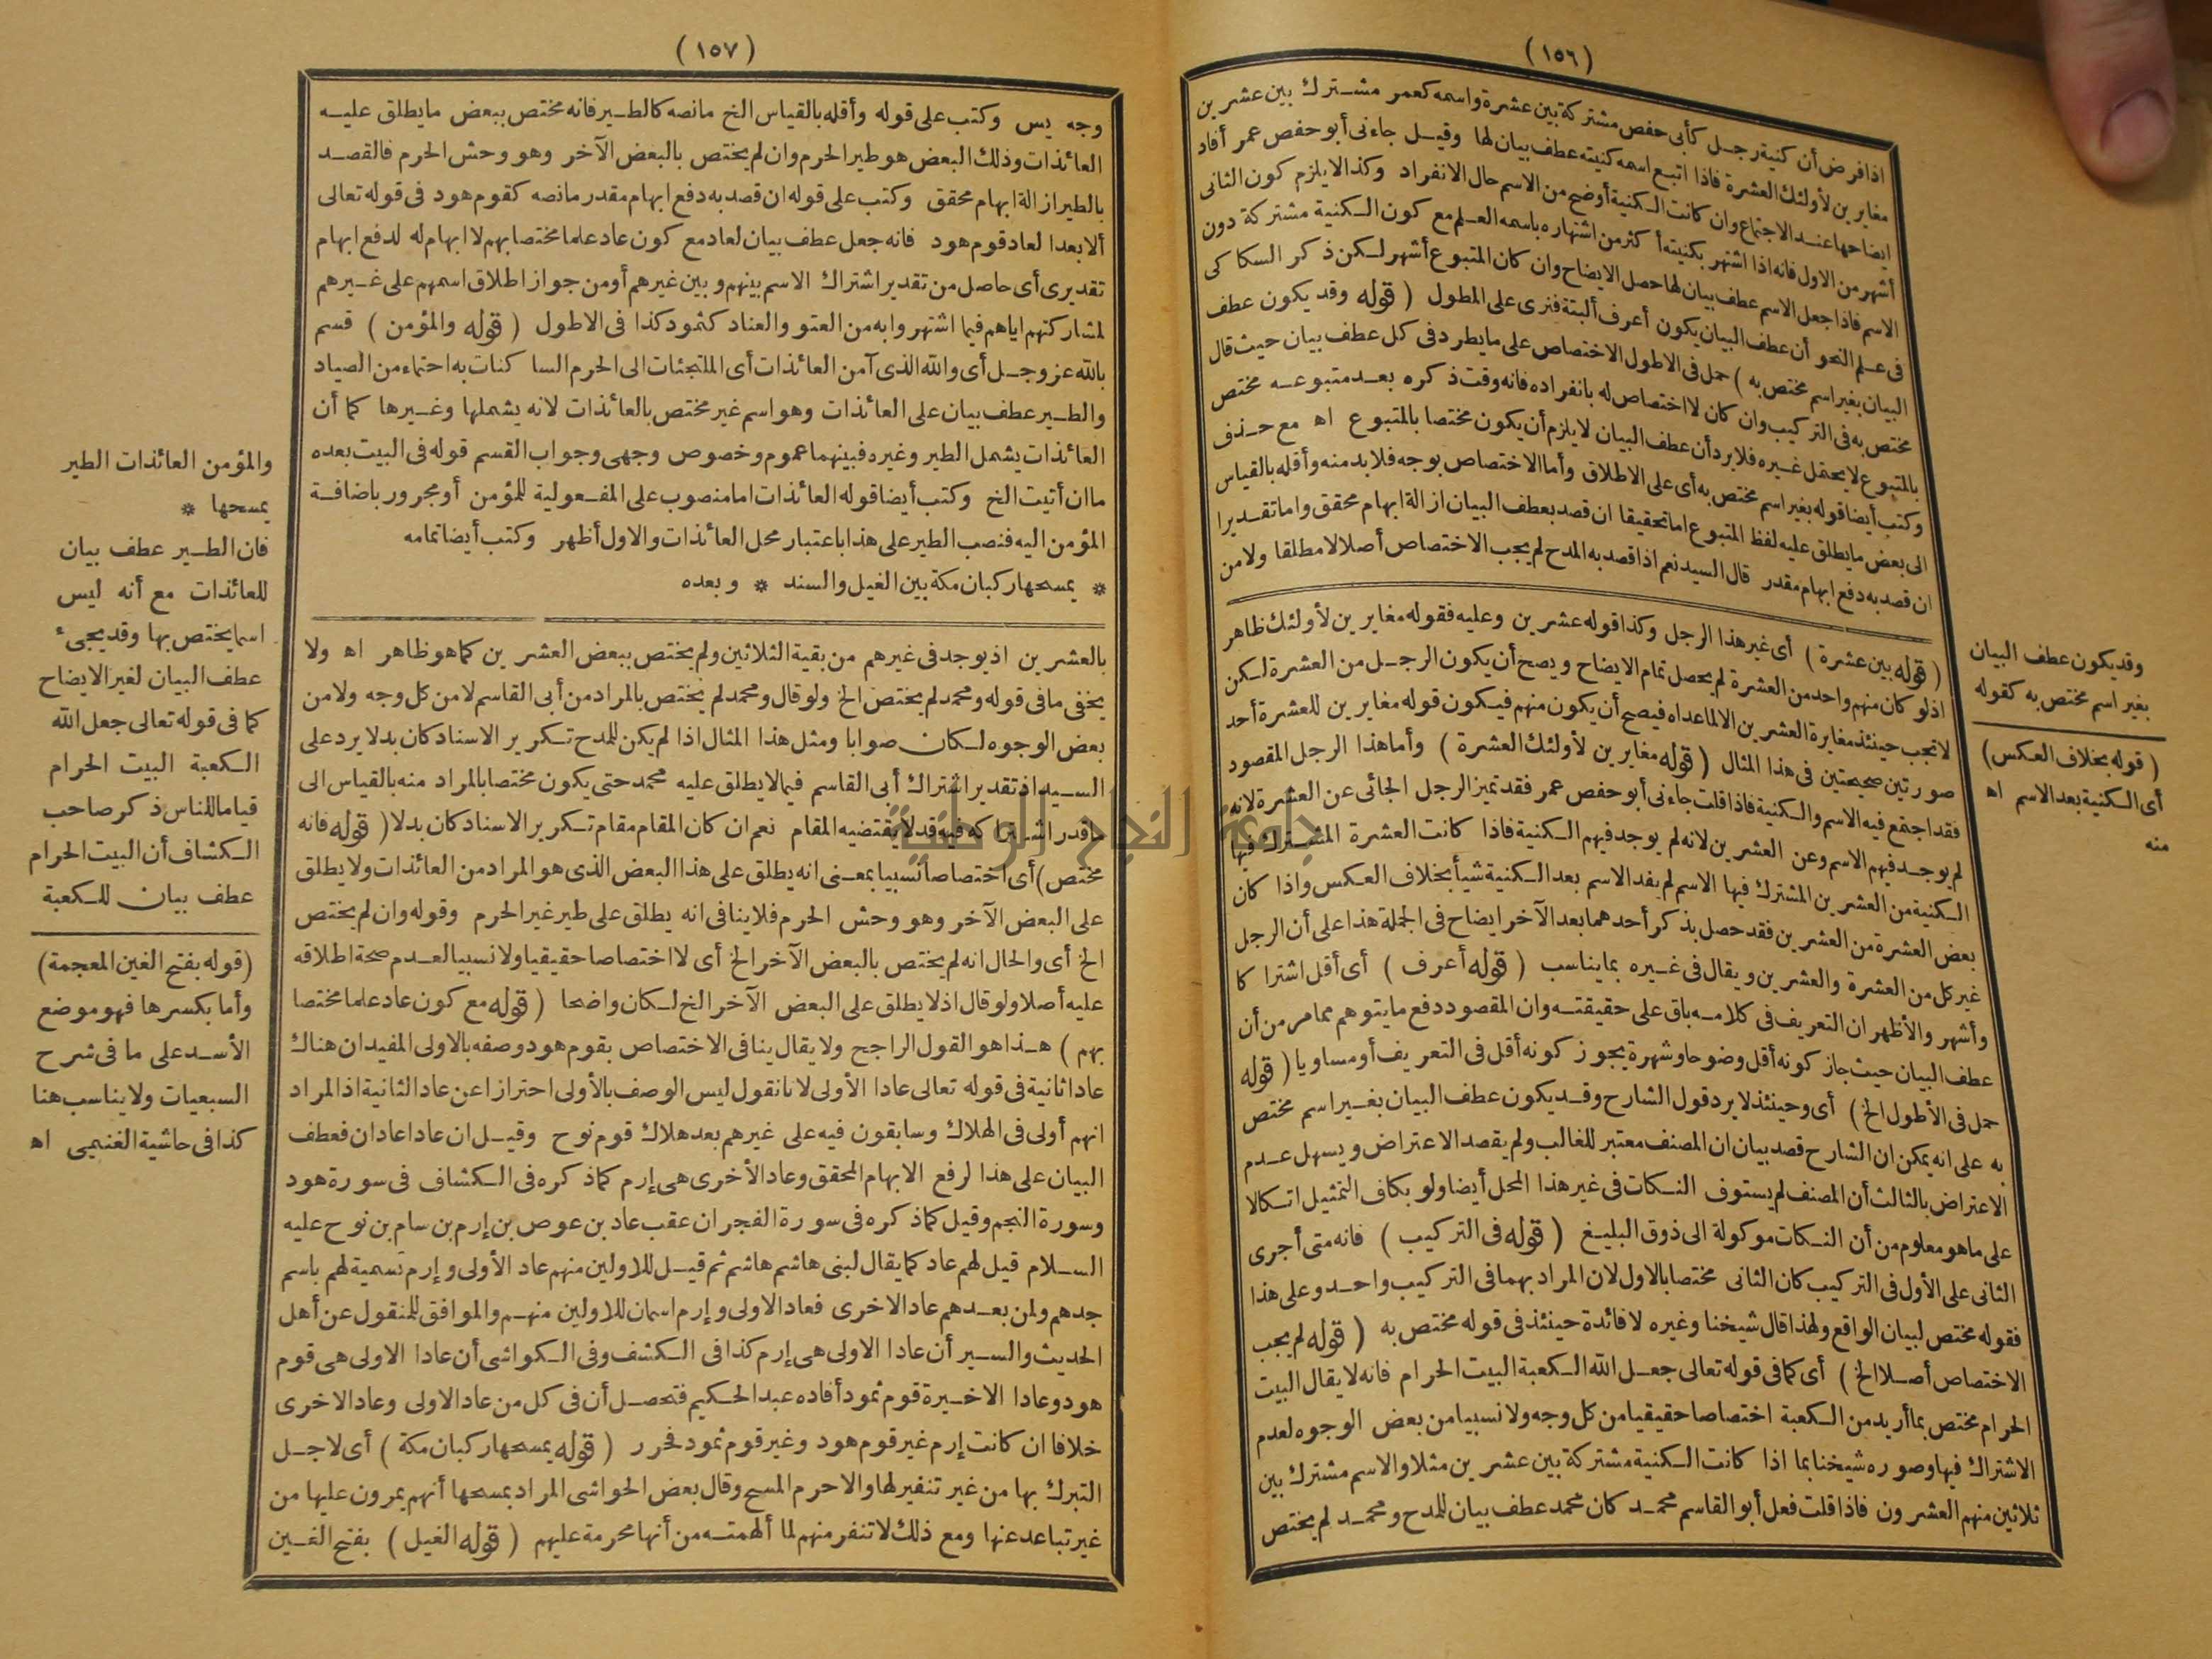 (١٥٦)
اذا فرض أن كنية رجل كأبى حفص مشتركة بين عشرة واسمه كعمر مشترك بين عشرين
مغايرين لأولئك العشرة فاذا اتبع اسمه كنيته عطف بيان لها وقيل جاءنى أبو حفص عمر أفاد
ايضاحها عند الاجتماع وان كانت الكنية أوضح من الاسم حال الانفراد وكذا لا يلزم كون الثانى
أشهر من الاول فانه اذا اشتهر بكنيته أكثر من اشتهاره باسمه العلم مع كون الكنية مشتركة دون
الاسم فاذا جعل الاسم عطف بيان لها حصل الايضاح وان كان المتبوع أشهر لكن ذكر السكاكى
فى علم النحو أن عطف البيان يكون أعرف ألبتة فنرى على المطول (قوله وقد يكون عطف
البيان بغير اسم مختص به) حمل فى الاطول الاختصاص على ما يطرد فى كل عطف بيان حيث قال
مختص به فى التركيب وان كان لا اختصاص له بانفراده فانه وقت ذكره بعد متبوعه مختص
بالمتبوع لا يحتمل غيره فلا يرد أن عطف البيان لا يلزم أن يكون مختصا بالمتبوع اه مع حذف
وكتب أيضا قوله بغير اسم مختص به أى على الاطلاق وأما الاختصاص بوجه فلا بد منه وأقله بالقياس
الى بعض ما يطلق عليه لفظ المتبوع اما تحقيقا ان قصد بعطف البيان ازالة ابهام محقق واما تقديرا
ان قصد به دفع ابهام مقدر قال السيد نعم اذا قصد به المدح لم يجب الاختصاص أصلا لا مطلقا ولا من
(قوله بين عشرة) أى غير هذا الرجل وكذا قوله عشرين وعليه فقوله مغايرين لأولئك ظاهر
اذ لو كان منهم واحد من العشرة لم يحصل تمام الايضاح ويصح أن يكون الرجل من العشرة لكن
لا تجب حينئذ مغايرة العشرين الا لما عداه فيصح أن يكون منهم فيكون قوله مغايرين للعشرة أحد
صورتين صحيحتين فى هذا المثال (قوله مغايرين لأولئك العشرة) وأما هذا الرجل المقصود
فقد اجتمع فيه الاسم والكنية فاذا قلت جاءنى أبو حفص عمر فقد تميز الرجل الجائى عن العشرة لانه
لم يوجد فيهم الاسم وعن العشرين لانه لم يوجد فيهم الكنية فاذا كانت العشرة المشترك فيها
الكنية من العشرين المشترك فيها الاسم لم يفد الاسم بعد الكنية شيأ بخلاف العكس واذا كان
بعض العشرة من العشرين فقد حصل بذكر أحدهما بعد الآخر ايضاح فى الجملة هذا على أن الرجل
غير كل من العشرة والعشرين ويقال فى غيره بما يناسب (قوله أعرف) أى أقل اشتراكا
وأشهر والأظهر ان التعريف فى كلامه باق على حقيقته وان المقصود دفع ما يتوهم مما مر من أن
عطف البيان حيث جاز كونه أقل وضوحا وشهرة يجوز كونه أقل فى التعريف أو مساويا (قوله
حمل فى الأطول الخ) أى وحينئذ لا يرد قول الشارح وقد يكون عطف البيان بغير اسم مختص
به على انه يمكن ان الشارح قصد بيان ان المصنف معتبر للغالب ولم يقصد الاعتراض ويسهل عدم
الاعتراض بالثالث أن المصنف لم يستوف النكات فى غير هذا المحل أيضا ولو بكاف التمثيل اتكالا
على ما هو معلوم من أن النكات موكولة الى ذوق البليغ (قوله فى التركيب) فانه متى أجرى
الثانى على الأول فى التركيب كان الثانى مختصا بالاول لان المراد بهما فى التركيب واحد وعلى هذا
فقوله مختص لبيان الواقع ولهذا قال شيخنا وغيره لا فائدة حينئذ فى قوله مختص به (قوله لم يجب
الاختصاص أصلا الخ) أى كما فى قوله تعالى جعل الله الكعبة البيت الحرام فانه لا يقال البيت
الحرام مختص بما أريد من الكعبة اختصاصا حقيقيا من كل وجه ولا نسبيا من بعض الوجوه لعدم
الاشتراك فيها وصوره شيخنا بما اذا كانت الكنية مشتركة بين عشرين مثلا والاسم مشترك بين
ثلاثين منهم العشرون فاذا قلت فعل أبو القاسم محمد كان محمد عطف بيان للمدح ومحمد لم يختص
وقد يكون عطف البيان
بغير اسم مختص به كقوله
(قوله بخلاف العكس)
أى الكنية بعد الاسم اه
منه
(١٥٧)
وجه يس وكتب على قوله وأقله بالقياس الخ ما نصه كالطير فانه مختص ببعض ما يطلق عليه
العائذات وذلك البعض هو طير الحرم وان لم يختص بالبعض الآخر وهو وحش الحرم فالقصد
بالطير ازالة ابهام محقق وكتب على قوله ان قصد به دفع ابهام مقدر ما نصه كقوم هود فى قوله تعالى
ألا بعدا لعاد قوم هود فانه جعل عطف بيان لعاد مع كون عاد علما مختصا بهم لا ابهام له لدفع ابهام
تقديرى أى حاصل من تقدير اشتراك الاسم بينهم وبين غيرهم أو من جواز اطلاق اسمهم على غيرهم
لمشاركتهم اياهم فيما اشتهروا به من العتو والعناد كثمود كذا فى الاطول (قوله والمؤمن) قسم
بالله عز وجل أى والله الذى آمن العائذات أى الملتجئات الى الحرم الساكنات به احتماء من الصياد
والطير عطف بيان على العائذات وهو اسم غير مختص بالعائذات لانه يشملها وغيرها كما أن
العائذات يشمل الطير وغيره فبينهما عموم وخصوص وجهى وجواب القسم قوله فى البيت بعده
ما ان أتيت الخ وكتب أيضا قوله العائذات اما منصوب على المفعولية للمؤمن أو مجرور باضافة
المؤمن اليه فنصب الطير على هذا باعتبار محل العائذات والاول أظهر وكتب أيضا تمامه
* يمسحها ركبان مكة بين الغيل والسند * وبعده
بالعشرين اذ يوجد فى غيرهم من بقية الثلاثين ولم يختص ببعض العشرين كما هو ظاهر اه ولا
يخفى ما فى قوله ومحمد لم يختص الخ ولو قال ومحمد لم يختص بالمراد من أبى القاسم لا من كل وجه ولا من
بعض الوجوه لكان صوابا ومثل هذا المثال اذا لم يكن للمدح تكرير الاسناد كان بدلا يرد على
السيد اذ تقدير اشتراك أبى القاسم فيما لا يطلق عليه محمد حتى يكون مختصا بالمراد منه بالقياس الى
ما قدر اشتراكه فيه قد لا يقتضيه المقام نعم ان كان المقام مقام تكرير الاسناد كان بدلا (قوله فانه
مختص) أى اختصاصا نسبيا بمعنى انه يطلق على هذا البعض الذى هو المراد من العائذات ولا يطلق
على البعض الآخر وهو وحش الحرم فلا ينافى انه يطلق على طير غير الحرم وقوله وان لم يختص
الخ أى والحال انه لم يختص بالبعض الآخر الخ أى لا اختصاصا حقيقيا ولا نسبيا لعدم صحة اطلاقه
عليه أصلا ولو قال اذ لا يطلق على البعض الآخر الخ لكان واضحا (قوله مع كون عاد علما مختصا
بهم) هذا هو القول الراجح ولا يقال ينافى الاختصاص بقوم هود وصفه بالاولى المفيد ان هناك
عادا ثانية فى قوله تعالى عادا الأولى لانا نقول ليس الوصف بالأولى احترازا عن عاد الثانية اذ المراد
انهم أولى فى الهلاك وسابقون فيه على غيرهم بعد هلاك قوم نوح وقيل ان عادا عادان فعطف
البيان على هذا لرفع الابهام المحقق وعاد الأخرى هى إرم كما ذكره فى الكشاف فى سورة هود
وسورة النجم وقيل كما ذكره فى سورة الفجر ان عقب عاد بن عوص بن إرم بن سام بن نوح عليه
السلام قيل لهم عاد كما يقال لبنى هاشم هاشم ثم قيل للاولين منهم عاد الأولى وإرم تسمية لهم باسم
جدهم ولمن بعدهم عاد الاخرى فعاد الاولى وإرم اسمان للاولين منهم والموافق للمنقول عن أهل
الحديث والسير أن عادا الاولى هى إرم كذا فى الكشف وفى الكواشى أن عادا الاولى هى قوم
هود وعادا الاخيرة قوم ثمود أفاده عبد الحكيم فتحصل أن فى كل من عاد الاولى وعاد الاخرى
خلافا ان كانت إرم غير قوم هود وغير قوم ثمود فحرر (قوله يمسحها ركبان مكة) أى لاجل
التبرك بها من غير تنفير لها والا حرم المسح وقال بعض الحواشى المراد بمسحها أنهم يمرون عليها من
غير تباعد عنها ومع ذلك لا تنفر منهم لما ألهمته من أنها محرمة عليهم (قوله الغيل) بفتح الغين
والمؤمن العائذات الطير
يمسحها *
فان الطير عطف بيان
للعائذات مع أنه ليس
اسما يختص بها وقد يجىء
عطف البيان لغير الايضاح
كما فى قوله تعالى جعل الله
الكعبة البيت الحرام
قياما للناس ذكر صاحب
الكشاف أن البيت الحرام
عطف بيان للكعبة
(قوله بفتح الغين المعجمة)
وأما بكسرها فهو موضع
الأسد على ما فى شرح
السبعيات ولا يناسب هنا
كذا فى حاشية الغنيمى اه
جامعة النجاح الوطنية